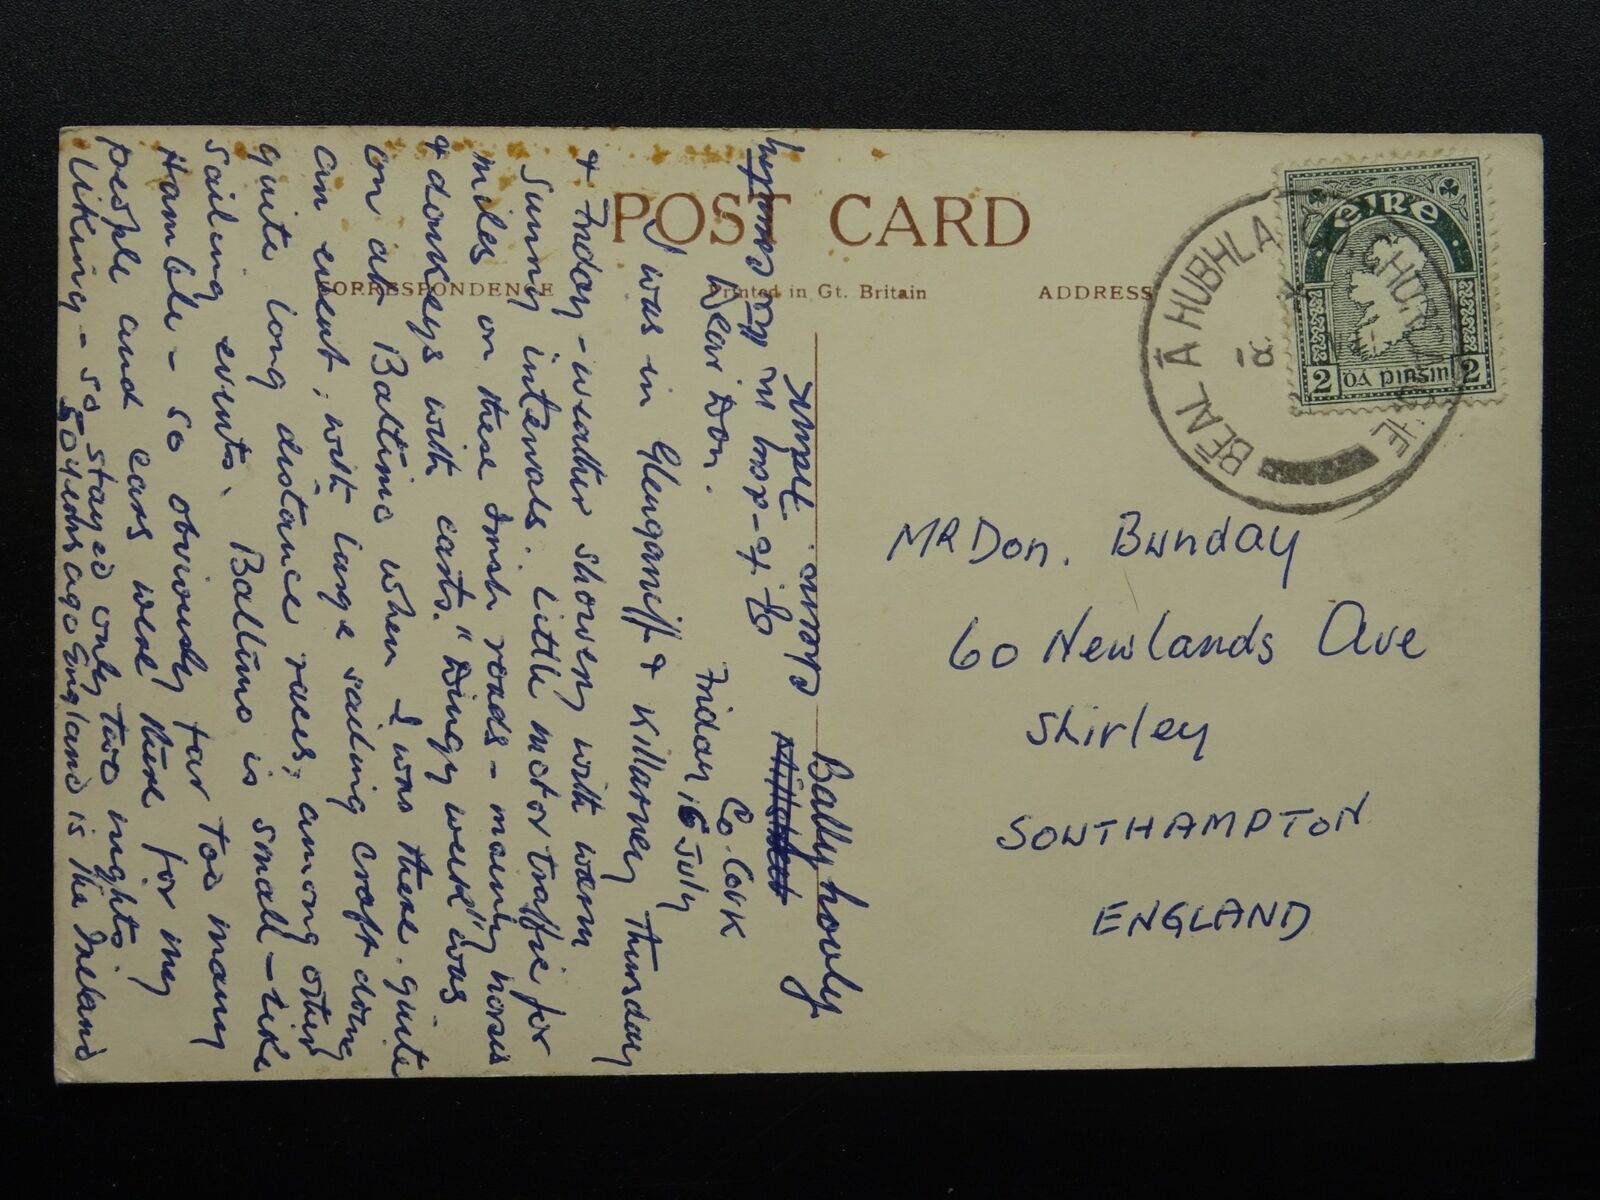 POST CARD
CORRESPONDENCE
Printed in Gt. Britain
ADDRESS
ÉIRE
2 DÁ PINGIN 2
BÉAL Á HUBHLA
Mr Don. Bunday
60 Newlands Ave
Shirley
SOUTHAMPTON
ENGLAND
Ballyhooly
Co. Cork
Friday 16 July
Dear Don.
I was in Glengariff & Killarney Thursday
& Friday - weather showery with warm
sunny intervals. Little motor traffic for
miles on these Irish roads - many horses
& donkeys with carts. "Dingy week" was
on at Baltimo when I was there. quite
an event, with large sailing craft doing
quite long distance races, among other
sailing events. Baltimo is small - like
Hamble - so obviously far too many
people and cars were there for my
liking - so stayed only two nights.
50 years ago England is the Ireland
of to-day in
Frank